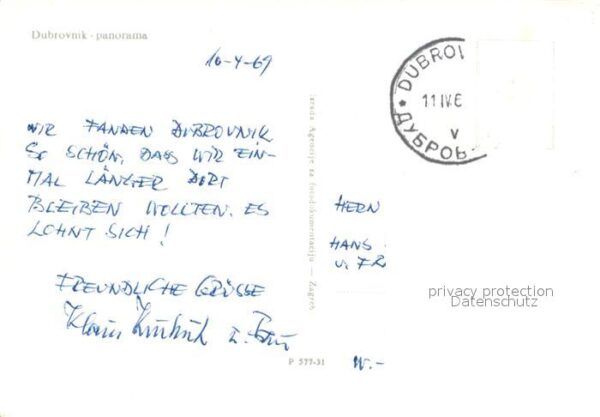 Dubrovnik - panorama
10-4-69
WIR FANDEN DUBROVNIK
SO SCHÖN, DASS WIR EIN-
MAL LÄNGER DORT
BLEIBEN WOLLTEN. ES
LOHNT SICH!
FREUNDLICHE GRÜSSE
Klaus u. Frau
Agencije za fotodokumentaciju — Zagreb
P 577-31
DUBROV
11 IV 6
V
ДУБРОВ
HERN
HANS
u. FR
W.-
privacy protection
Datenschutz